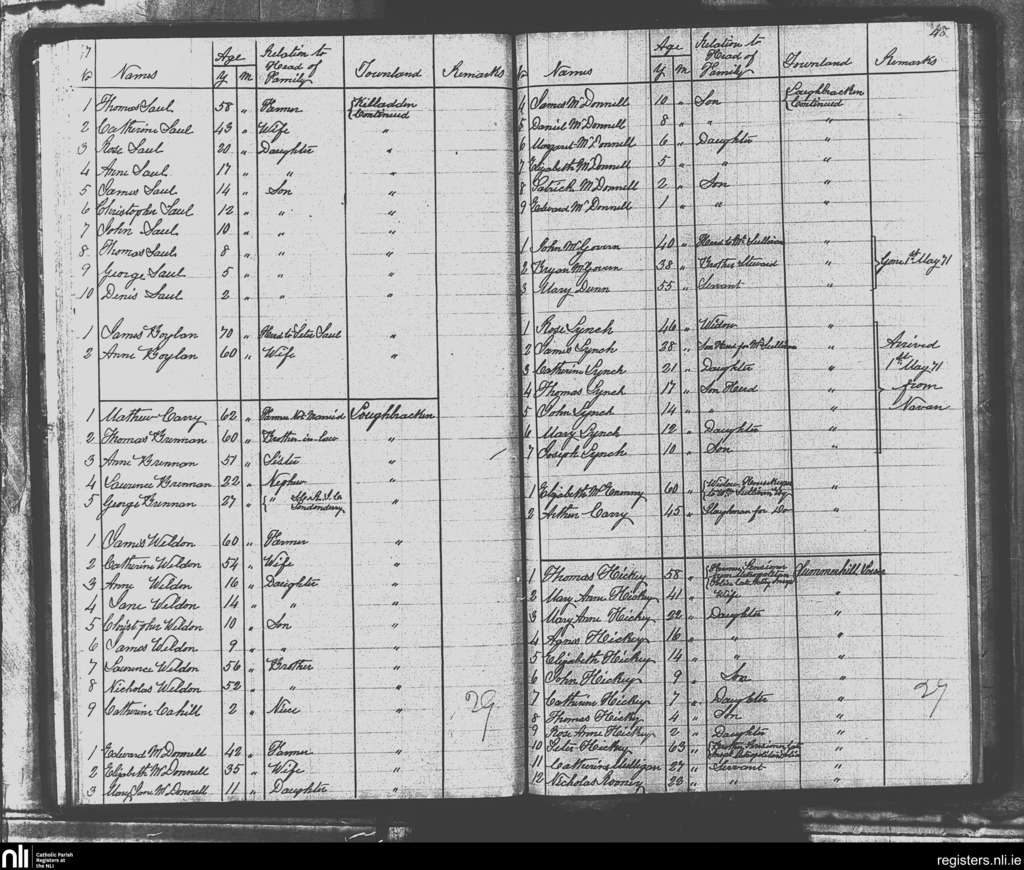 7
No Names Age Y. M Relation to Head of Family Townland Remarks
1 Thomas Saul 58 " Farmer Killadden Continued
2 Catherine Saul 43 " Wife "
3 Rose Saul 20 " Daughter "
4 Anne Saul 17 " " "
5 James Saul 14 " Son "
6 Christopher Saul 12 " " "
7 John Saul 10 " " "
8 Thomas Saul 8 " " "
9 George Saul 5 " " "
10 Denis Saul 2 " " "
1 James Boylan 70 " Herd to Peter Saul "
2 Anne Boylan 60 " Wife "
1 Mathew Carry 62 " Farmer Not Married Loughbracken
2 Thomas Brennan 60 " Brother-in-law "
3 Anne Brennan 51 " Sister "
4 Laurence Brennan 22 " Nephew "
5 George Brennan 27 " " Londonderry "
1 James Weldon 60 " Farmer "
2 Catherine Weldon 54 " Wife "
3 Anny Weldon 16 " Daughter "
4 Jane Weldon 14 " " "
5 Christopher Weldon 10 " Son "
6 James Weldon 9 " " "
7 Laurence Weldon 56 " Brother "
8 Nicholas Weldon 52 " " "
9 Catherine Cahill 2 " Niece "
29
1 Edward McDonnell 42 " Farmer "
2 Elizabeth McDonnell 35 " Wife "
3 Mary Jane McDonnell 11 " Daughter "
48
No Names Age Y. M Relation to Head of Family Townland Remarks
4 James McDonnell 10 " Son Loughbracken Continued
5 Daniel McDonnell 8 " " "
6 Margaret McDonnell 6 " Daughter "
7 Elizabeth McDonnell 5 " " "
8 Patrick McDonnell 2 " Son "
9 Edward McDonnell 1 " " "
1 John McGovern 40 " Herd to Mr Sullivan "
2 Bryan McGovern 38 " Brother Steward " Gone 1st May 71
3 Mary Dunn 55 " Servant "
1 Rose Lynch 46 " Widow "
2 James Lynch 28 " Son Herd for Mr Sullivan " Arrived
3 Catherine Lynch 21 " Daughter " 1st May 71
4 Thomas Lynch 17 " Son Herd " from
5 John Lynch 14 " " " Navan
6 Mary Lynch 12 " Daughter "
7 Joseph Lynch 10 " Son "
1 Elizabeth McEnemny 60 " Widow Housekeeper to Wm Sullivan Esq "
2 Arthur Carry 45 " Ploughman for Do "
1 Thomas Hickey 58 " Pensioner Metropolitan Police Summerhill House
2 Mary Anne Hickey 41 " Wife "
3 Mary Anne Hickey 22 " Daughter "
4 Agnes Hickey 16 " " "
5 Elizabeth Hickey 14 " " "
6 John Hickey 9 " Son "
7 Catherine Hickey 7 " Daughter "
8 Thomas Hickey 4 " Son "
9 Rose Anne Hickey 2 " Daughter "
10 Peter Hickey 63 " Brother Pensioner "
11 Catherine Mulligan 27 " Servant "
12 Nicholas Rooney 23 " " "
27
nli Catholic Parish
Registers at
the NLI
registers.nli.ie